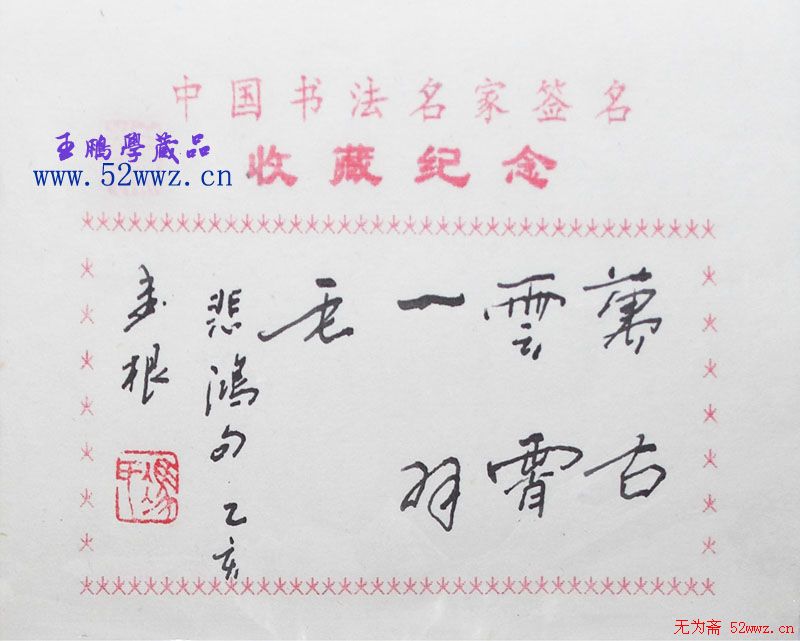 中国书法名家签名
收藏纪念
王鵬學藏品
www.52wwz.cn
萬古
雲霄
一羽
毛
悲鴻句 乙亥
根
无为斋 52wwz.cn